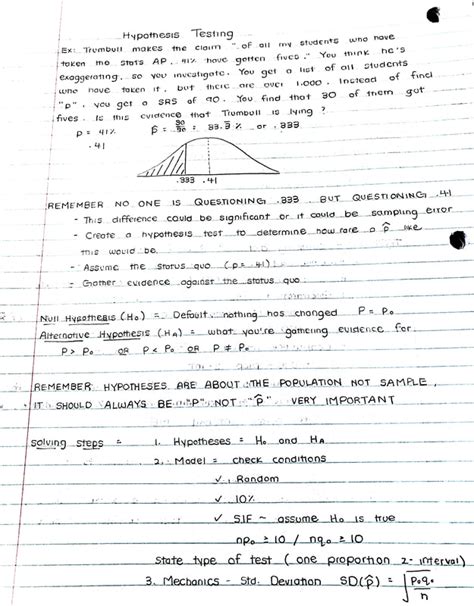 Hypothesis Testing
Ex: Trumbull makes the claim "of all my students who have
taken the Stats AP, 41% have gotten fives." You think he's
exaggerating, so you investigate. You get a list of all students
who have taken it, but there are over 1,000. Instead of find
"p", you get a SRS of 90. You find that 30 of them got
fives. Is this evidence that Trumbull is lying?
p = 41% p̂ = 30/90 = 33.3̅% or .333
.41
.333 .41
REMEMBER NO ONE IS QUESTIONING .333 BUT QUESTIONING .41
- This difference could be significant or it could be sampling error
- Create a hypothesis test to determine how rare a p̂ like
this would be.
- Assume the status quo (p = .41)
- Gather evidence against the status quo
Null Hypothesis (Ho) = Default, nothing has changed P = Po
Alternative Hypothesis (HA) = what you're gathering evidence for
P > Po OR P < Po OR P ≠ Po
REMEMBER HYPOTHESES ARE ABOUT THE POPULATION NOT SAMPLE,
IT SHOULD ALWAYS BE "P" NOT "p̂" VERY IMPORTANT
Solving Steps = 1. Hypotheses = Ho and HA
2. Model = check conditions
✓ Random
✓ 10%
✓ S/F ~ assume Ho is true
npo ≥ 10 / nqo ≥ 10
State type of test (one proportion z-interval)
3. Mechanics - Std. Deviation SD(p̂) = √(Poqo/n)